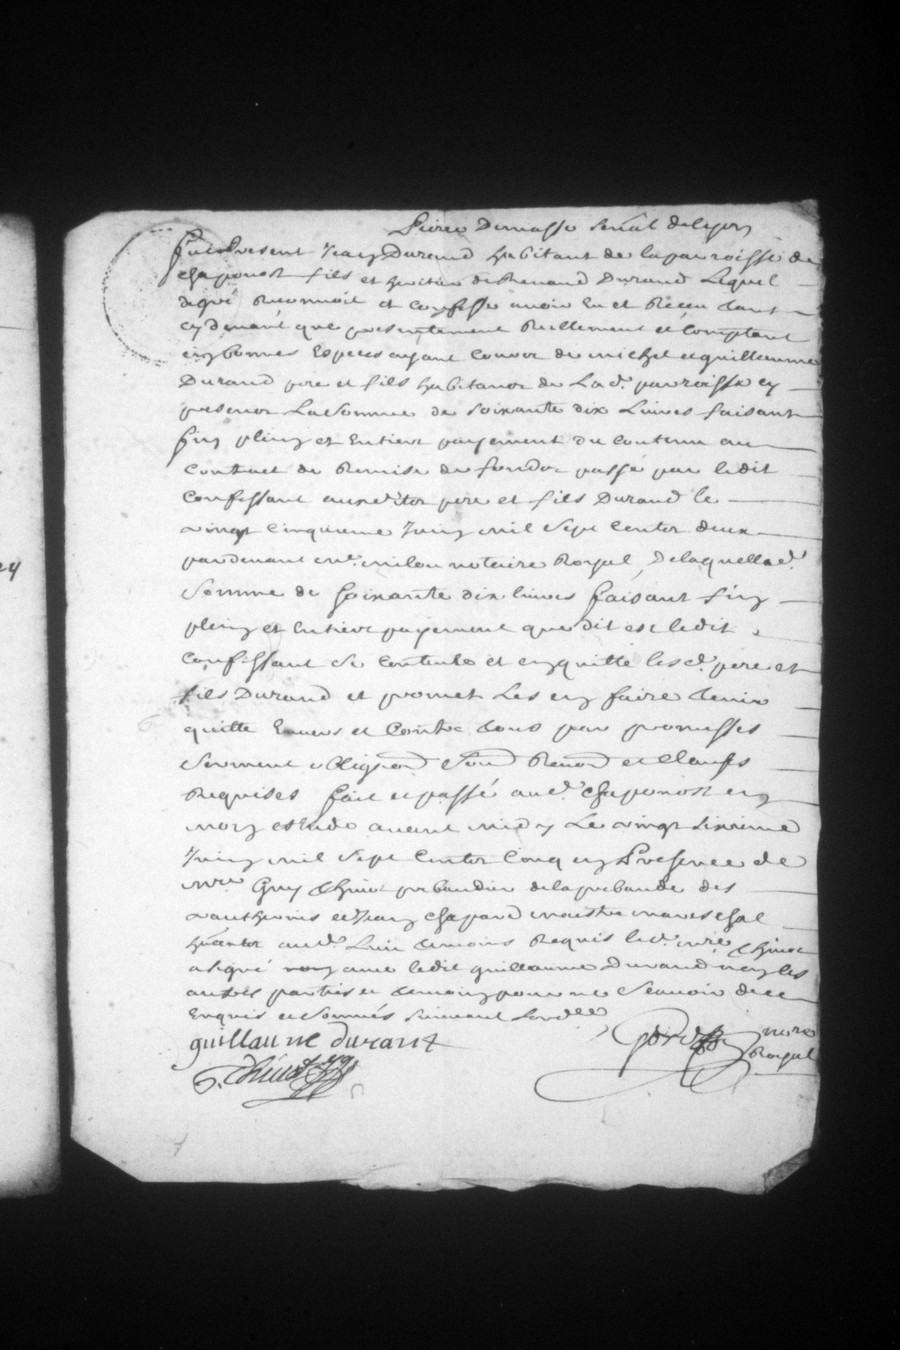 24
Livres Demasse Senal de lyon
Fut Present Jean Durand habitant de la parroisse de
chaponost fils et heritier de Renaud Durand Lequel
degré Reconnoit et confesse avoir Eu et Receu tant
cydevant que presentement Reellement et Comptant
en bonnes Especes ayant Cours de michel et guillaume
Durand pere et fils habitans de Lad. parroisse cy
presens La Somme de Soixante dix Livres faisant
fin plein et Entier payement du contenu au
Contract de Remise de fondz passé par ledit
Confessant auxdits pere et fils Durand le
vingt Cinquieme Juin mil Sept Centz deux
pardevant me. milou notaire Royal, De laquelle d.
Somme de Soixante dix livres faisant fin
plein et Entier payement que dit est ledit
Confessant Se Contente et en quitte lesd. pere et
fils Durand et promet Les en faire tenir
quitte Envers et Contre tous par promesses
Serment obligaon Soud Renon et Clauses
Requises fait et passé aud. chaponost en
mon estude avant midy Le vingt Sixieme
Juin mil Sept Centz Cinq en Presence de
mre Guy Thinot prebandier de la prebande des
et Jean Chapard maistre mareschal
hitantz aud. Lieu temoins Requis led. mre Thinot
a signé avec ledit guillaume Durand non les
autres parties et temoin pour ne Scavoir de ce
Enquis et Sommés Suivant Lordce
guillaume durant
G. Thinot
notre
Royal